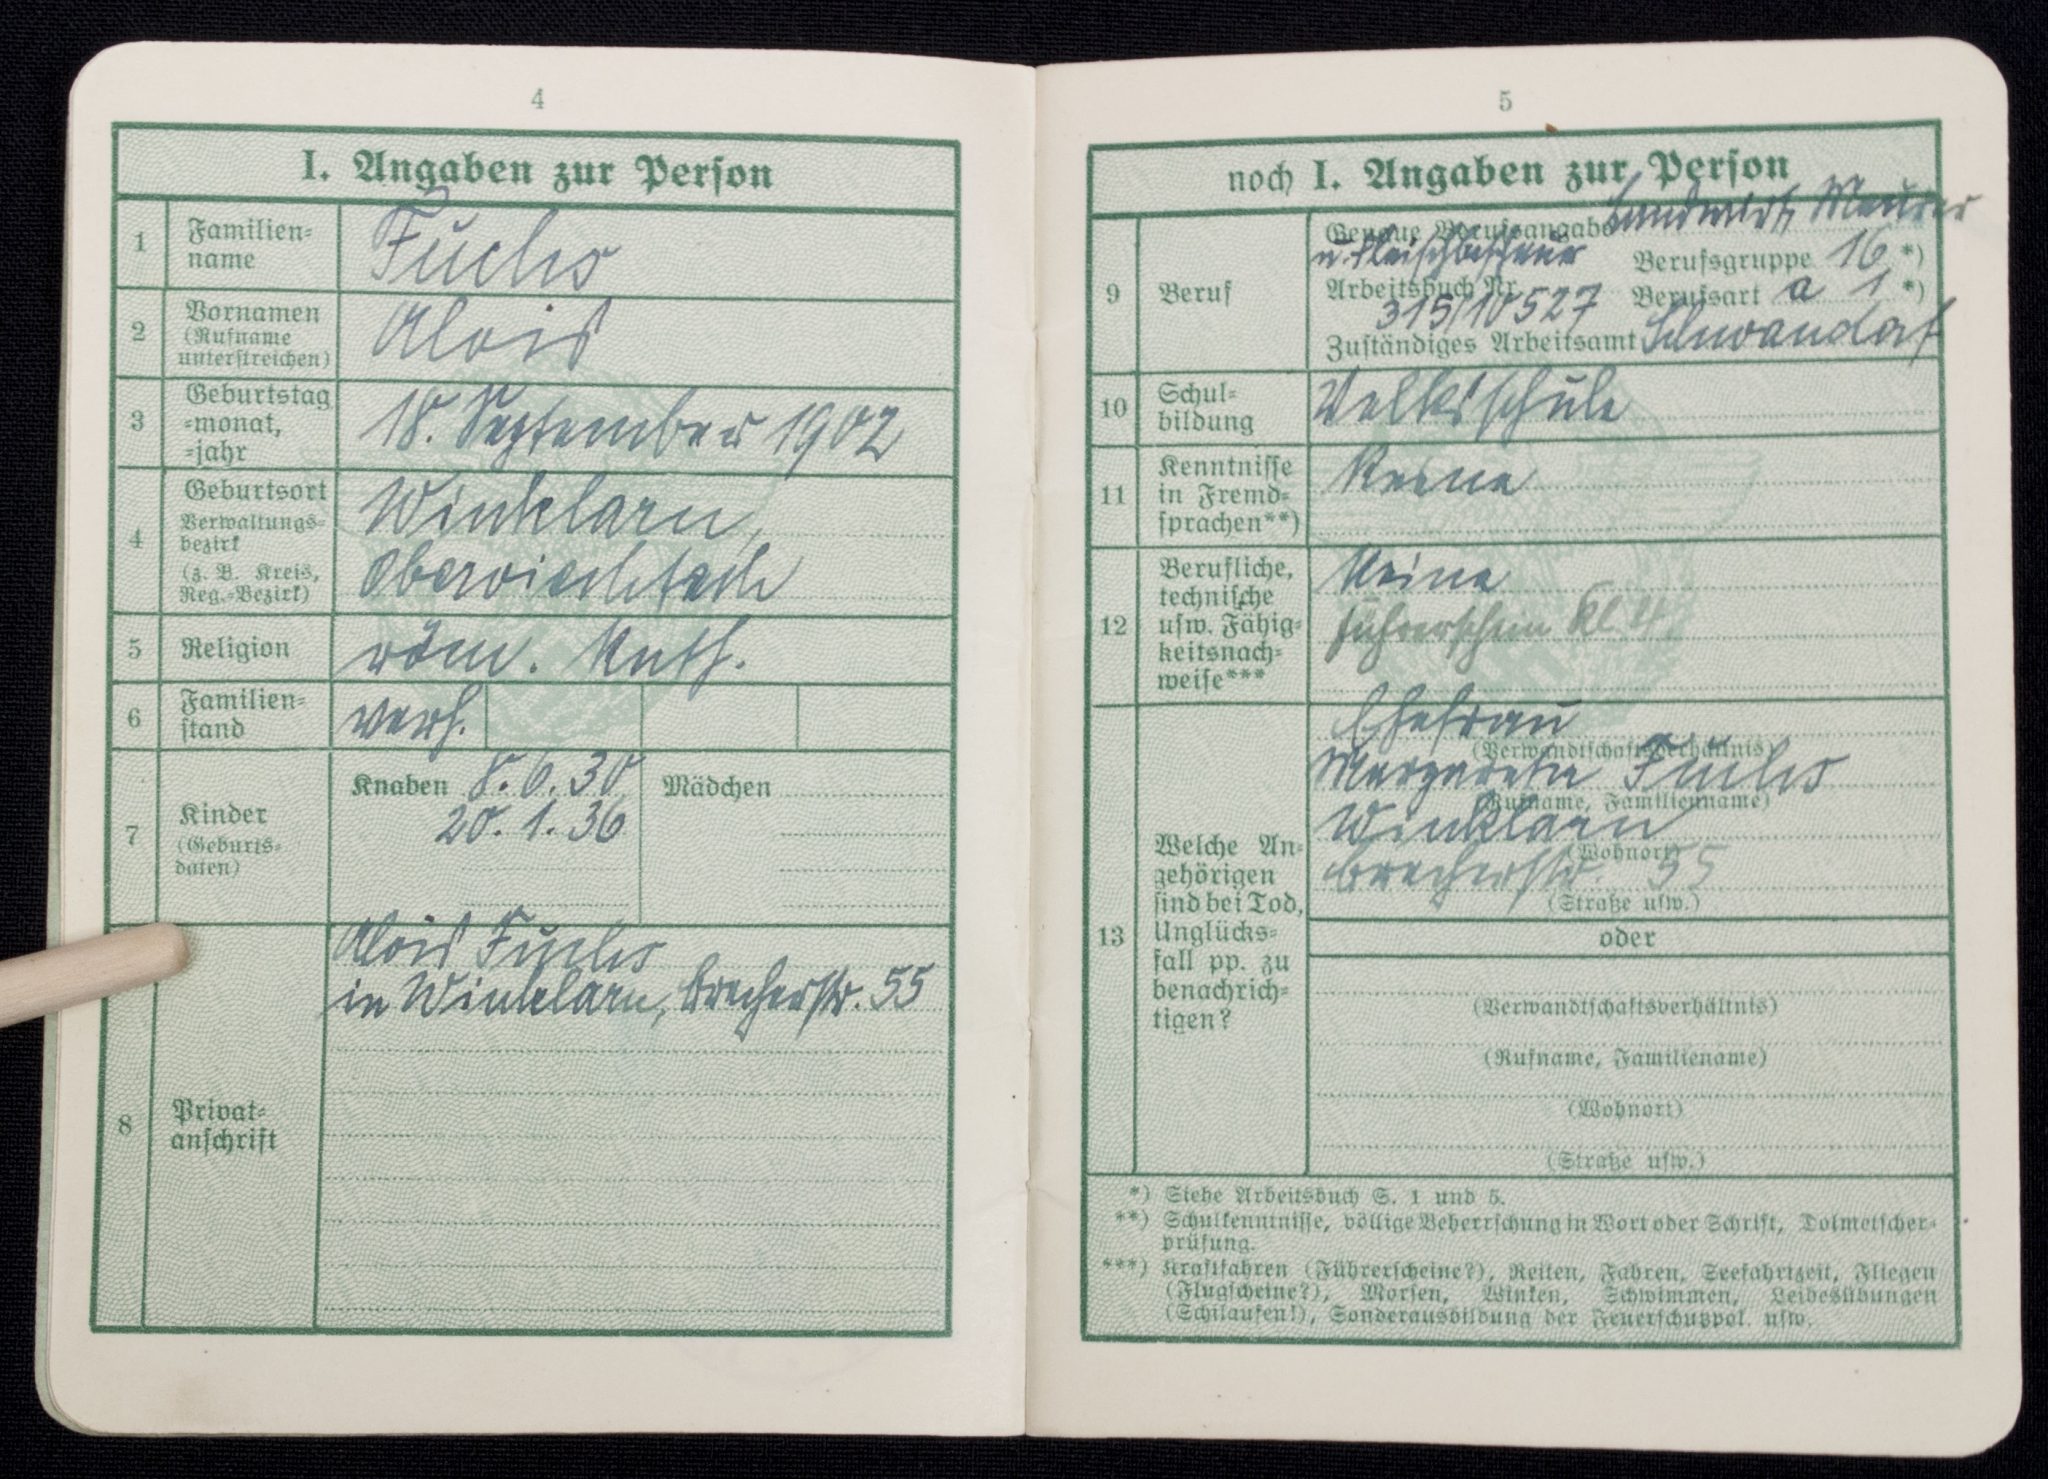 4
I. Angaben zur Person
1
Familien-
name
Fuchs
2
Vornamen
(Rufname
unterstreichen)
Alois
3
Geburtstag
-monat,
-jahr
18. September 1902
4
Geburtsort
Verwaltungs-
bezirk
(z. B. Kreis,
Reg.-Bezirk)
Winklarn,
Oberviechtach
5
Religion
röm. kath.
6
Familien-
stand
verh.
7
Kinder
(Geburts-
daten)
Knaben 8.6.30
20.1.36
Mädchen
8
Privat-
anschrift
Alois Fuchs
in Winklarn, 55
5
noch I. Angaben zur Person
9
Beruf
Genaue Berufsangabe Landwirt, Maurer
u. Fleischbeschauer
Berufsgruppe 16 *)
Arbeitsbuch Nr.
315/10527
Berufsart a 1 *)
Zuständiges Arbeitsamt Schwandorf
10
Schul-
bildung
Volksschule
11
Kenntnisse
in Fremd-
sprachen**)
Keine
12
Berufliche,
technische
usw. Fähig-
keitsnach-
weise***
Keine
Führerschein Kl. 4
13
Welche An-
gehörigen
sind bei Tod,
Unglücks-
fall pp. zu
benachrich-
tigen?
Ehefrau
(Verwandtschaftsverhältnis)
Margareta Fuchs
(Rufname, Familienname)
Winklarn
(Wohnort)
55
(Straße usw.)
oder
(Verwandtschaftsverhältnis)
(Rufname, Familiename)
(Wohnort)
(Straße usw.)
*) Siehe Arbeitsbuch S. 1 und 5.
**) Schulkenntnisse, völlige Beherrschung in Wort oder Schrift, Dolmetscher-
prüfung.
***) Kraftfahren (Führerscheine?), Reiten, Fahren, Seefahrtzeit, Fliegen
(Flugscheine?), Morsen, Winken, Schwimmen, Leibesübungen
(Schilaufen!), Sonderausbildung der Feuerschutzpol. usw.